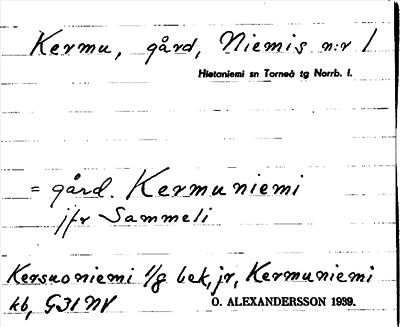 Kermu, gård, Niemis n:r 1
Hietaniemi sn Torneå tg Norrb. l.
= gård. Kermuniemi
jfr Sammeli
Kersuoniemi 1/8 bek, jr, Kermuniemi
kb, G31NV O. ALEXANDERSSON 1939.